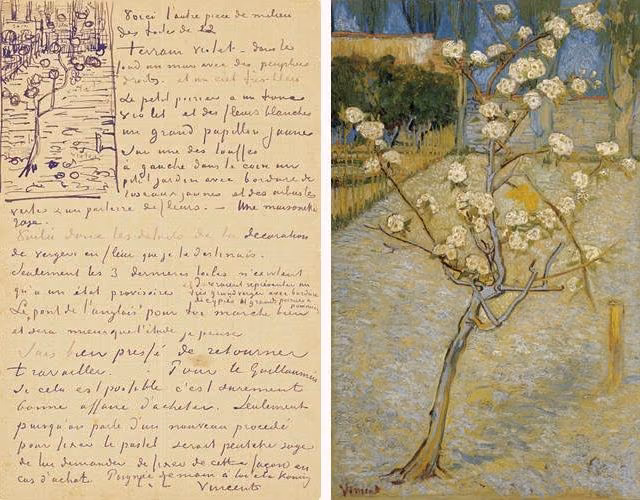 Voici l'autre pièce de milieu
des toiles de 12
terrain violet – dans le
fond un mur avec des peupliers
droits et un ciel très bleu
Le petit poirier a un tronc
violet et des fleurs blanches
un grand papillon jaune
sur une des touffes
à gauche dans le coin un
petit jardin avec bordure de
roseaux jaunes et des arbustes
vertes & un parterre de fleurs. – Une maisonette
rose.
Voilà donc les détails de la decoration
de vergers en fleur que je te destinais.
Seulement les 3 dernieres toiles n'existent
qu'à un état provisoire et devraient représenter un
très grand verger avec bordure
de cyprès et grands poiriers &
pommiers
Le pont de l'anglois pour toi marche bien
et sera mieux que l'étude je pense
Suis bien pressé de retourner
travailler. Pour le Guillaumin
si cela est possible c'est surement
bonne affaire d'acheter. Seulement
puisqu'on parle d'un nouveau procedé
pour fixer le pastel serait peutetre sage
de lui demander de fixer de cette façon en
cas d'achat. Poignée de main à toi et à Koning
t. à t. Vincent
Vincent